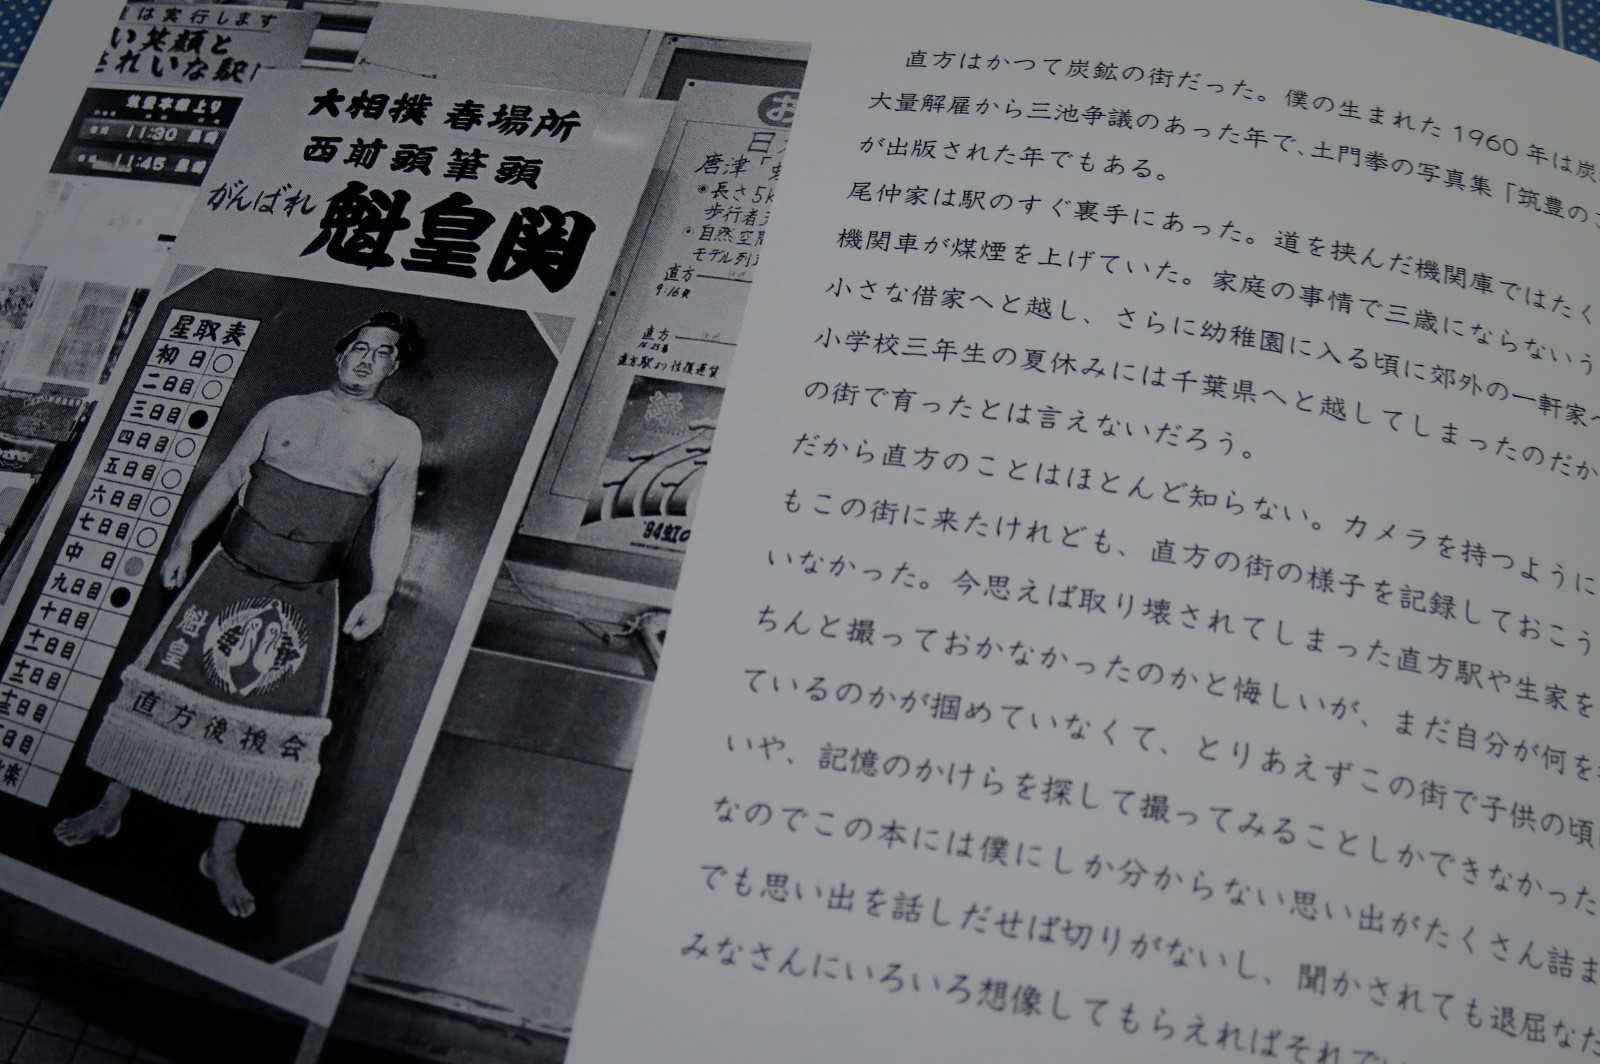 は実行します
い笑顔と
きれいな駅に
筑豊本線上り
11:30 黒崎
11:45 黒崎
大相撲 春場所
西前頭筆頭
がんばれ 魁皇関
星取表
初日○
二日目○
三日目●
四日目○
五日目○
六日目○
七日目○
中日
九日目●
十日目
十一日目
十二日目
十三日目
日目
楽
魁皇
直方後援会
お
唐津「虹
長さ5k
歩行者天
自然空間
モデル列
直方
9:16発
直方
直方駅より往復運賃
緑
'94虹の
直方はかつて炭鉱の街だった。僕の生まれた1960年は炭
大量解雇から三池争議のあった年で、土門拳の写真集「筑豊のこ
が出版された年でもある。
尾仲家は駅のすぐ裏手にあった。道を挟んだ機関庫ではたく
機関車が煤煙を上げていた。家庭の事情で三歳にならないう
小さな借家へと越し、さらに幼稚園に入る頃に郊外の一軒家へ
小学校三年生の夏休みには千葉県へと越してしまったのだか
の街で育ったとは言えないだろう。
だから直方のことはほとんど知らない。カメラを持つように
もこの街に来たけれども、直方の街の様子を記録しておこう
いなかった。今思えば取り壊されてしまった直方駅や生家を
ちんと撮っておかなかったのかと悔しいが、まだ自分が何を
ているのかが掴めていなくて、とりあえずこの街で子供の頃
いや、記憶のかけらを探して撮ってみることしかできなかった
なのでこの本には僕にしか分からない思い出がたくさん詰ま
でも思い出を話しだせば切りがないし、聞かされても退屈なだ
みなさんにいろいろ想像してもらえればそれで